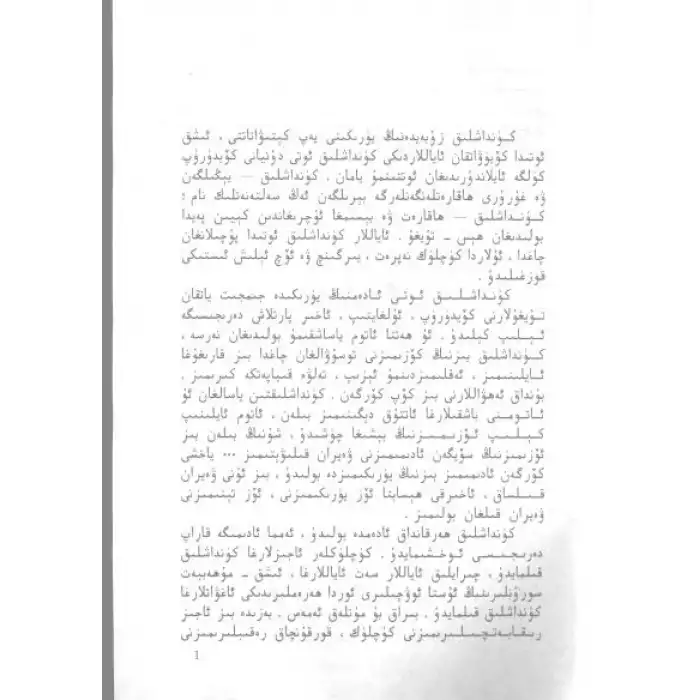 كۈنداشلىق زۇبەيدەنىڭ يۈرىكىنى يەپ كېتىۋاتاتتى ، ئىشق
ئوتىدا كۆيۈۋاتقان ئاياللاردىكى كۈنداشلىق ئوتى دۇنيانى كۆيدۈرۈپ
كۈلگە ئايلاندۇرىدىغان ئوتتىنمۇ يامان . كۈنداشلىق — يېڭىلگەن
ۋە غۇرۇرى ھاقارەتلەنگەنلەرگە بېرىلگەن ئەڭ سەلتەنەتلىك نام ؛
كۈنداشلىق — ھاقارەت ۋە بېسىمغا ئۇچرىغاندىن كېيىن پەيدا
بولىدىغان ھېس – تۇيغۇ . ئاياللار كۈنداشلىق ئوتىدا پۇچىلانغان
چاغدا ، ئۇلاردا كۈچلۈك نەپرەت ، يىرگىنچ ۋە ئۆچ ئېلىش ئىستىكى
قوزغىلىدۇ .
كۈنداشلىق ئوتى ئادەمنىڭ يۈرىكىدە جىمجىت ياتقان
تۇيغۇلارنى كۆيدۈرۈپ ، ئۇلغايتىپ ، ئاخىر پارتلاش دەرىجىسىگە
ئېلىپ كېلىدۇ . ئۇ ھەتتا ئاتوم ياساشقىمۇ بولىدىغان نەرسە .
كۈنداشلىق بىزنىڭ كۆزىمىزنى توسۇۋالغان چاغدا بىز قارىغۇغا
ئايلىنىمىز ، ئەقلىمىزدىنمۇ ئېزىپ ، تەلۋە قىياپەتكە كىرىمىز .
بۇنداق ئەھۋاللارنى بىز كۆپ كۆرگەن . كۈنداشلىقتىن ياسالغان ئۇ
ئاتومنى باشقىلارغا ئاتتۇق دېگىنىمىز بىلەن ، ئاتوم ئايلىنىپ
كېلىپ ئۆزىمىزنىڭ بېشىغا چۈشىدۇ ، شۇنىڭ بىلەن بىز
ئۆزىمىزنىڭ سۆيگەن ئادىمىمىزنى ۋەيران قىلىۋېتىمىز ... ياخشى
كۆرگەن ئادىمىمىز بىزنىڭ يۈرىكىمىزدە بولىدۇ ، بىز ئۇنى ۋەيران
قىلساق ، ئاخىرقى ھېسابتا ئۆز يۈرىكىمىزنى ، ئۆز تېنىمىزنى
ۋەيران قىلغان بولىمىز .
كۈنداشلىق ھەرقانداق ئادەمدە بولىدۇ ، ئەمما ئادىمىگە قاراپ
دەرىجىسى ئوخشىمايدۇ . كۈچلۈكلەر ئاجىزلارغا كۈنداشلىق
قىلمايدۇ ، چىرايلىق ئاياللار سەت ئاياللارغا ، ئىشق – مۇھەببەت
سورۇنلىرىنىڭ ئۇستا ئوۋچىلىرى ئوردا ھەرەملىرىدىكى ئاغۋاتلارغا
كۈنداشلىق قىلمايدۇ . بىراق بۇ مۇتلەق ئەمەس . بەزىدە بىز ئاجىز
رىقابەتچىلىرىمىزنى كۈچلۈك ، قورقۇنچاق رەقىبلىرىمىزنى
1